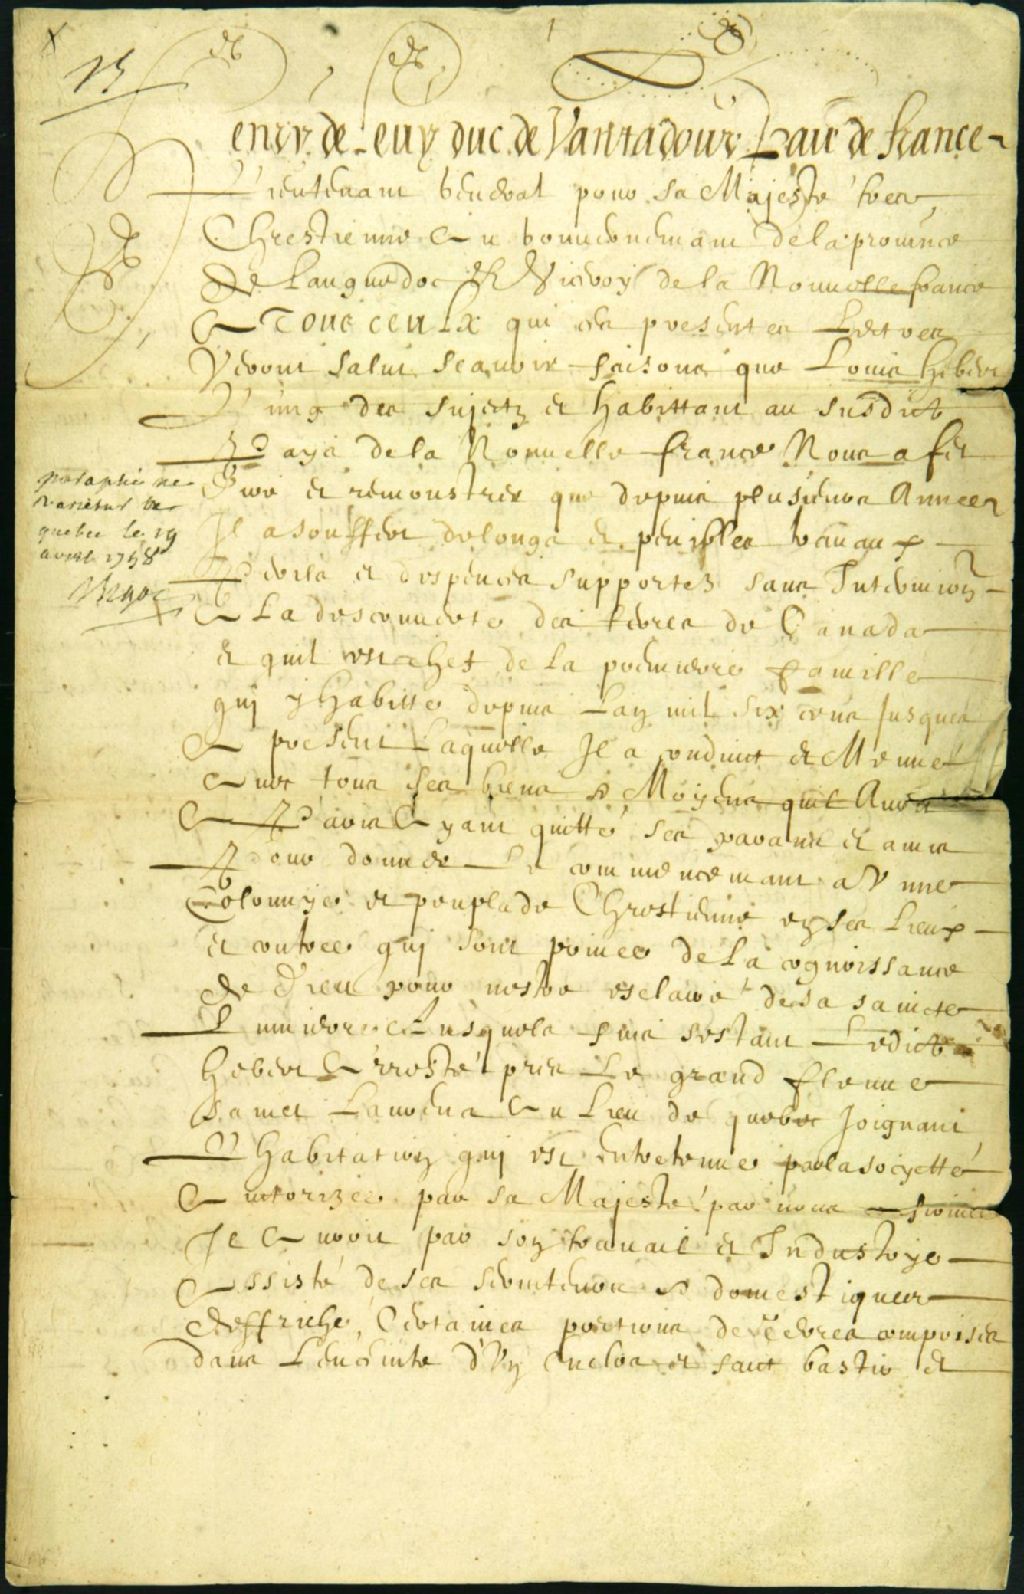 15
Henry de Leuy duc de Vantadour Pair de france
Lieutenant General pour sa Majesté tres
Chrestienne Au Gouvernemant de la province
De Languedoc Et Viceroy de la Nouuelle france
A Tous ceulx qui ces presentes Lettres
Verront salut scauoir faisons que Louis Hebert
L'ung des sujectz et habittant au susdict
Pays de la Nouuelle france Nous a fet
Dire et remonstrer que depuis plusieurs Annees
Il a souffert de longs et penibles trauaux
Perils et despences supportez sans Intermition
A La descouuerte des terres de Canada
et quil est chef de la premierre famille
quj y habitte depuis Lan mil six cens Jusques
A present Laquelle Il a conduict et Menné
Auec tous ses biens & Moyens quil Auoit
A Paris Ayant quitté ses parans et amis
Pour donner Le commencemant a Vnne
Colonnye et peuplade Chrestienne en ses Lieux
et contrees quj sont priuees de La cognoissance
de Dieu pour nestre esclairé de sa saincte
Lumierre Ausquels fins sestant Ledict
Hebert Arresté pres Le grand fleuue
Sainct Laurens Au Lieu de quebec Joignant
L'habitation quj est Entretenue par la socyetté
Auctorizée par sa Majesté par nous
Il Auroit par son trauail et Industrye
Assisté de ses seruiteurs & domestiques
deffriché Certaines portions de Terres comprises
dans L'enceinte d'Vn Enclos et faict bastir et
paraphé ne
varietur
quebec le 19
avril 1758